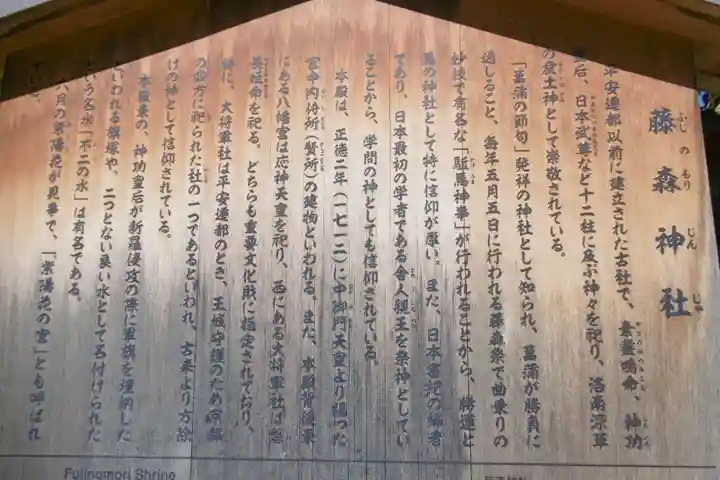 藤森神社
ふじのもりじんじゃ
平安遷都以前に建立された古社で、素盞鳴命、神功
皇后、日本武尊など十二柱に及ぶ神々を祀り、洛南深草
の産土神として崇敬されている。
「菖蒲の節句」発祥の神社として知られ、菖蒲が勝負に
通じること、毎年五月五日に行われる藤森祭で曲乗りの
妙技で有名な「駈馬神事」が行われることから、勝運と
馬の神社として特に信仰が厚い。また、日本書紀の編者
であり、日本最初の学者である舎人親王を祭神としてい
ることから、学問の神としても信仰されている。
本殿は、正徳二年（一七一二）に中御門天皇より賜った
宮中内侍所（賢所）の建物といわれる。また、本殿背後東
にある八幡宮は応神天皇を祀り、西にある大将軍社は磐
長姫命を祀る。どちらも重要文化財に指定されており、
特に、大将軍社は平安遷都のとき、王城守護のため京都
の四方に祀られた社の一つであるといわれ、古来より方除
けの神として信仰されている。
本殿東の、神功皇后が新羅侵攻の際に軍旗を埋納した
といわれる旗塚や、二つとない良い水として名付けられた
という名水「不二の水」は有名である。
六月の紫陽花が見事で、「紫陽花の宮」とも呼ばれ
ている。
Fujinomori Shrine